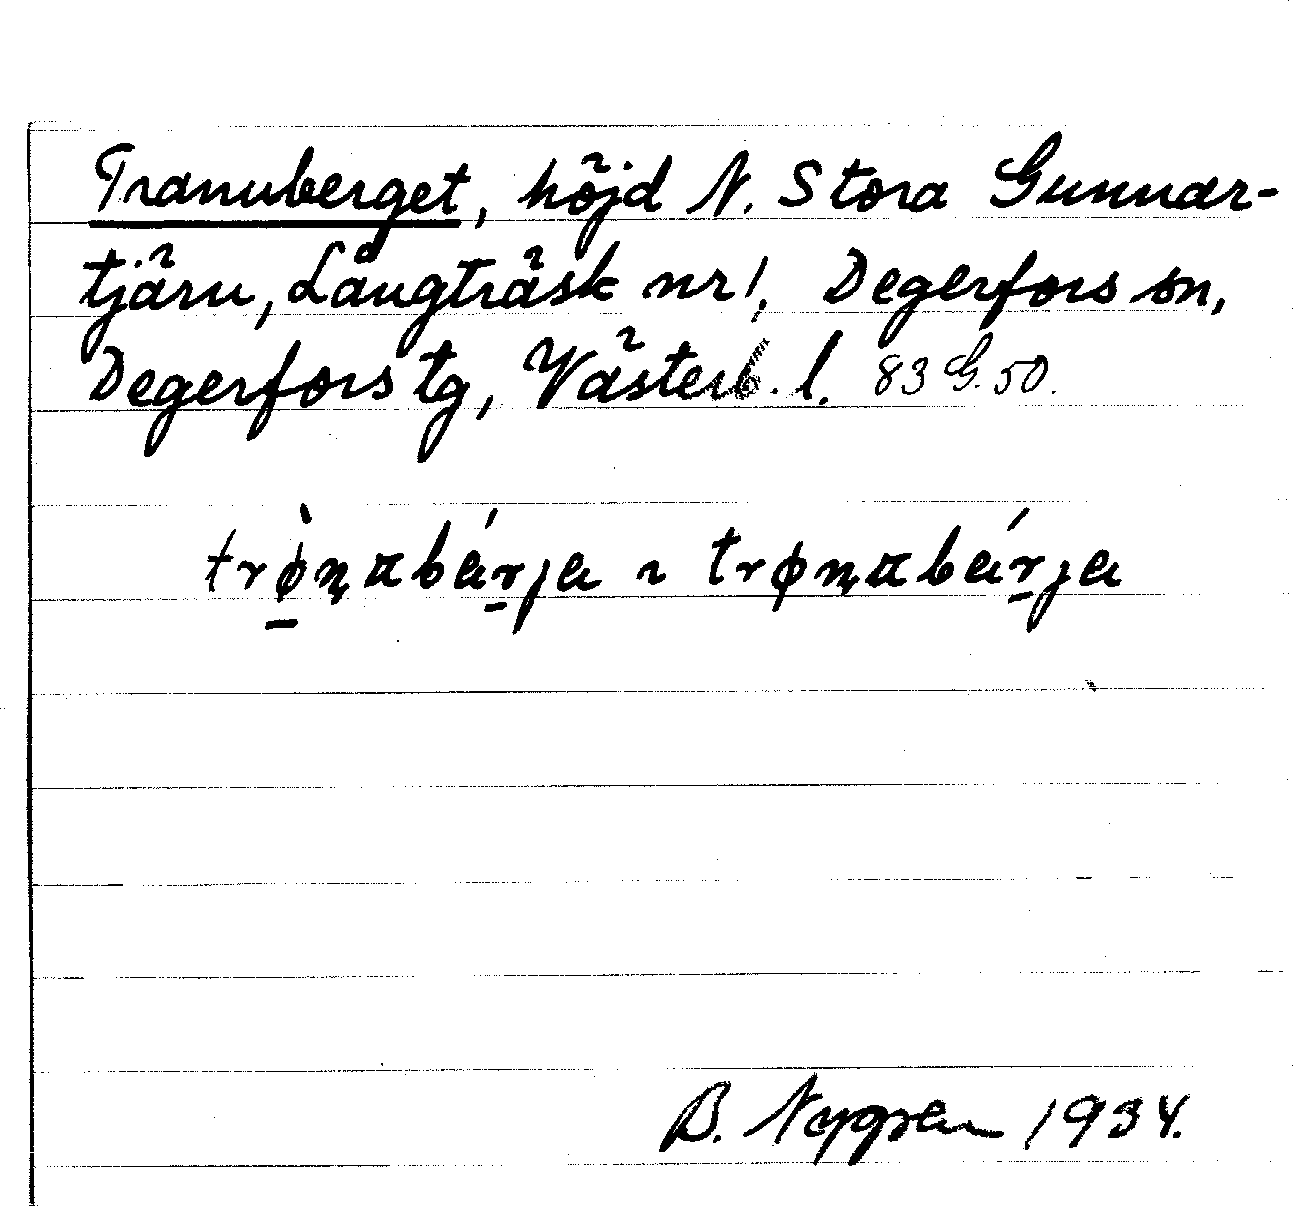 Tranuberget, höjd N. Stora Gunnar-
tjärn, Långträsk nr 1, Degerfors sn,
Degerfors tg, Västerb. l. 83 G. 50.
trø̠̀ṇabár̠ja ~ trøṇabár̠ja
B. Nygren 1934.